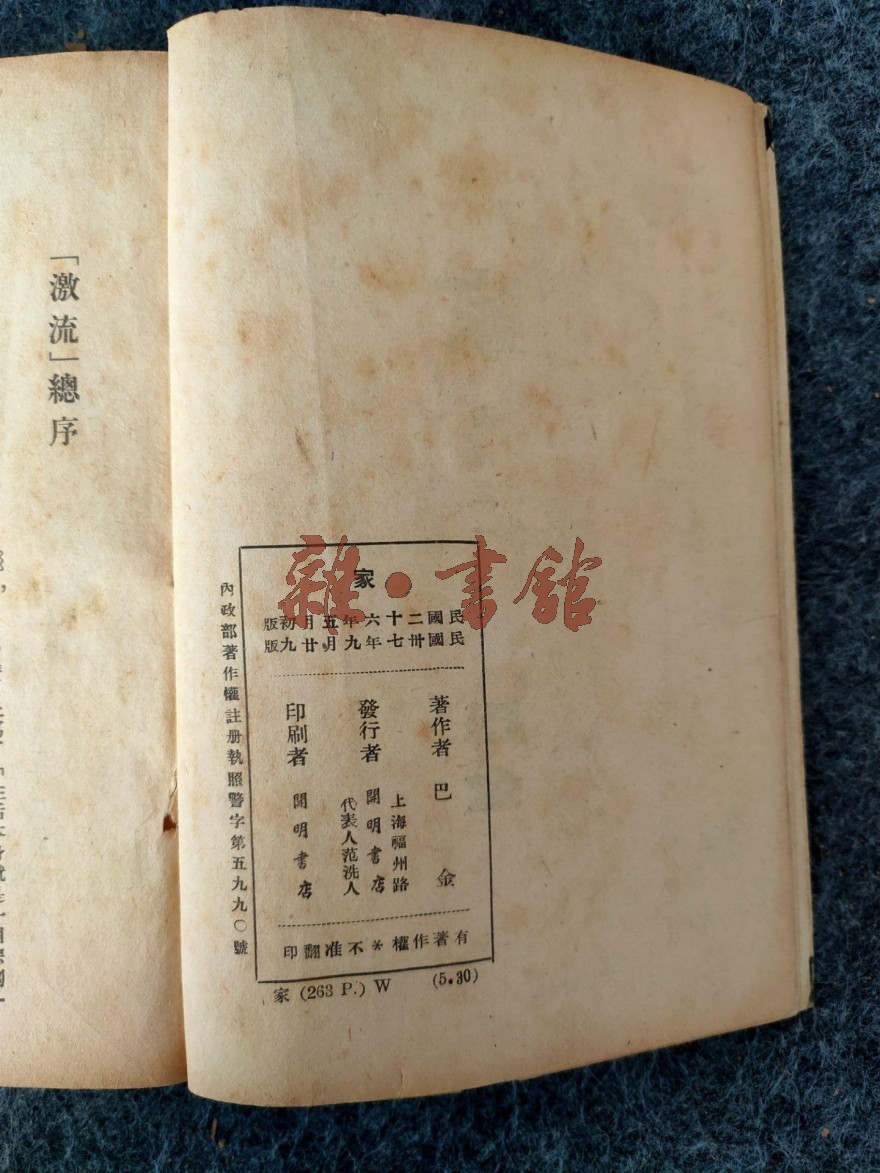 家
民國二十六年五月初版
民國卅七年九月廿九版
著作者 巴金
發行者 上海福州路
開明書店
代表人范洗人
印刷者 開明書店
有著作權*不准翻印
內政部著作權註册執照警字第五九九〇號
家 (263 P.) W (5.30)
「激流」總序
雜·書館